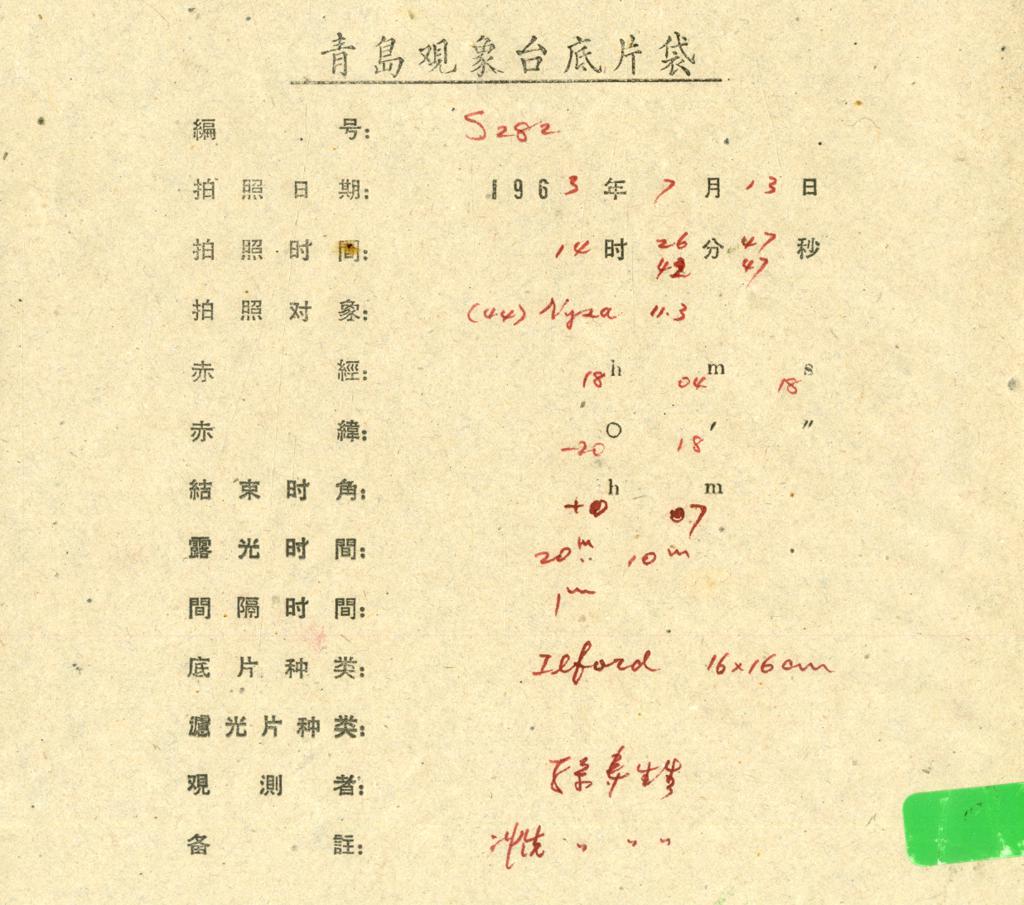 青島观象台底片袋
編号: S282
拍照日期: 1963年7月13日
拍照时間: 14时26分47秒
42 47
拍照对象: (44) Nysa 11.3
赤經: 18h 04m 18s
赤緯: -20° 18′ ″
結束时角: +0h 07m
露光时間: 20m 10m
間隔时間: 1m
底片种类: Ilford 16×16cm
濾光片种类:
观測者: 孫寿
备註: 冲洗 〃 〃 〃